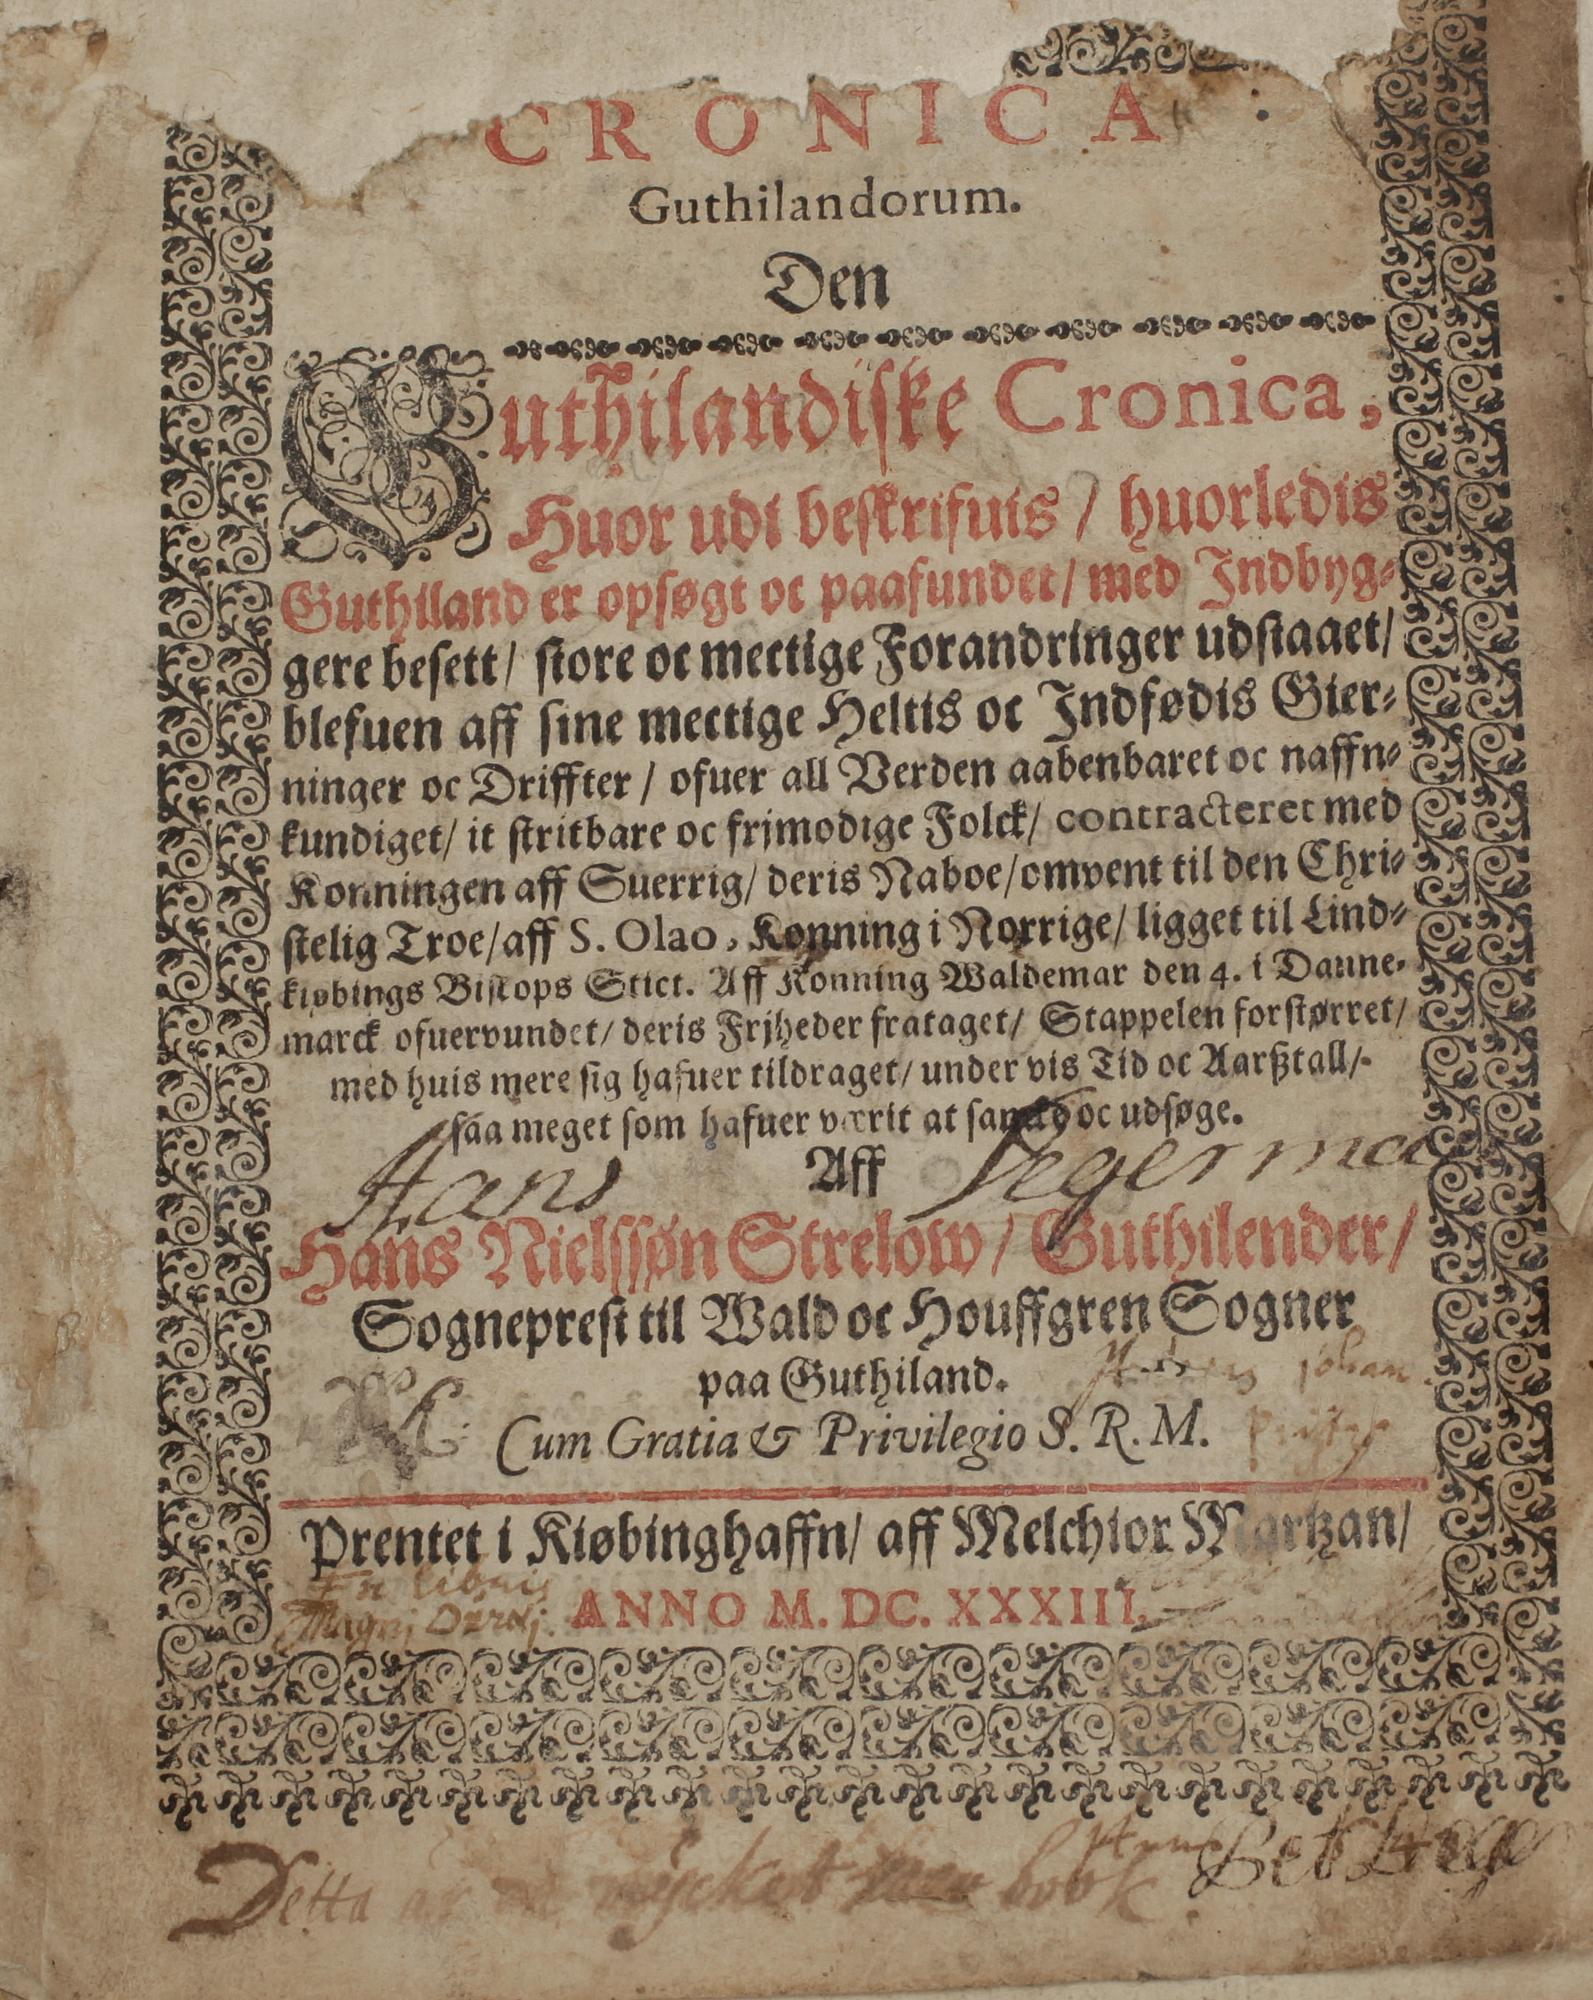 CRONICA
Guthilandorum.
Den
Guthilandiske Cronica,
Huor udi beskrifuis / huorledis
Guthiland er opsøgt oc paafundet / med Indbyg-
gere besett / store oc mectige Forandringer udstaaet /
blefuen aff sine mectige Heltis oc Indfødis Gier-
ninger oc Driffter / ofuer all Verden aabenbaret oc naffn-
kundiget / it stritbare oc frjmodige Folck / contracteret med
Konningen aff Suerrig / deris Naboe / omvent til den Chri-
stelig Troe / aff S. Olao, Konning i Norrige / ligget til Lind-
kiøbings Biscops Stict. Aff Konning Waldemar den 4. i Danne-
marck ofuervundet / deris Frjheder frataget / Stappelen forstørret /
med huis mere sig hafuer tildraget / under vis Tid oc Aarßtall /
saa meget som hafuer værit at samle oc udsøge.
Hans Aff Segerma
Hans Nielssøn Strelow / Guthilender /
Sogneprest til Wald oc Houffgren Sogner
paa Guthiland.
Johan
Cum Gratia & Privilegio S. R. M.
Prentet i Kiøbinghaffn / aff Melchior Martzan /
Ex libris
Magni
ANNO M. DC. XXXIII.
Detta book